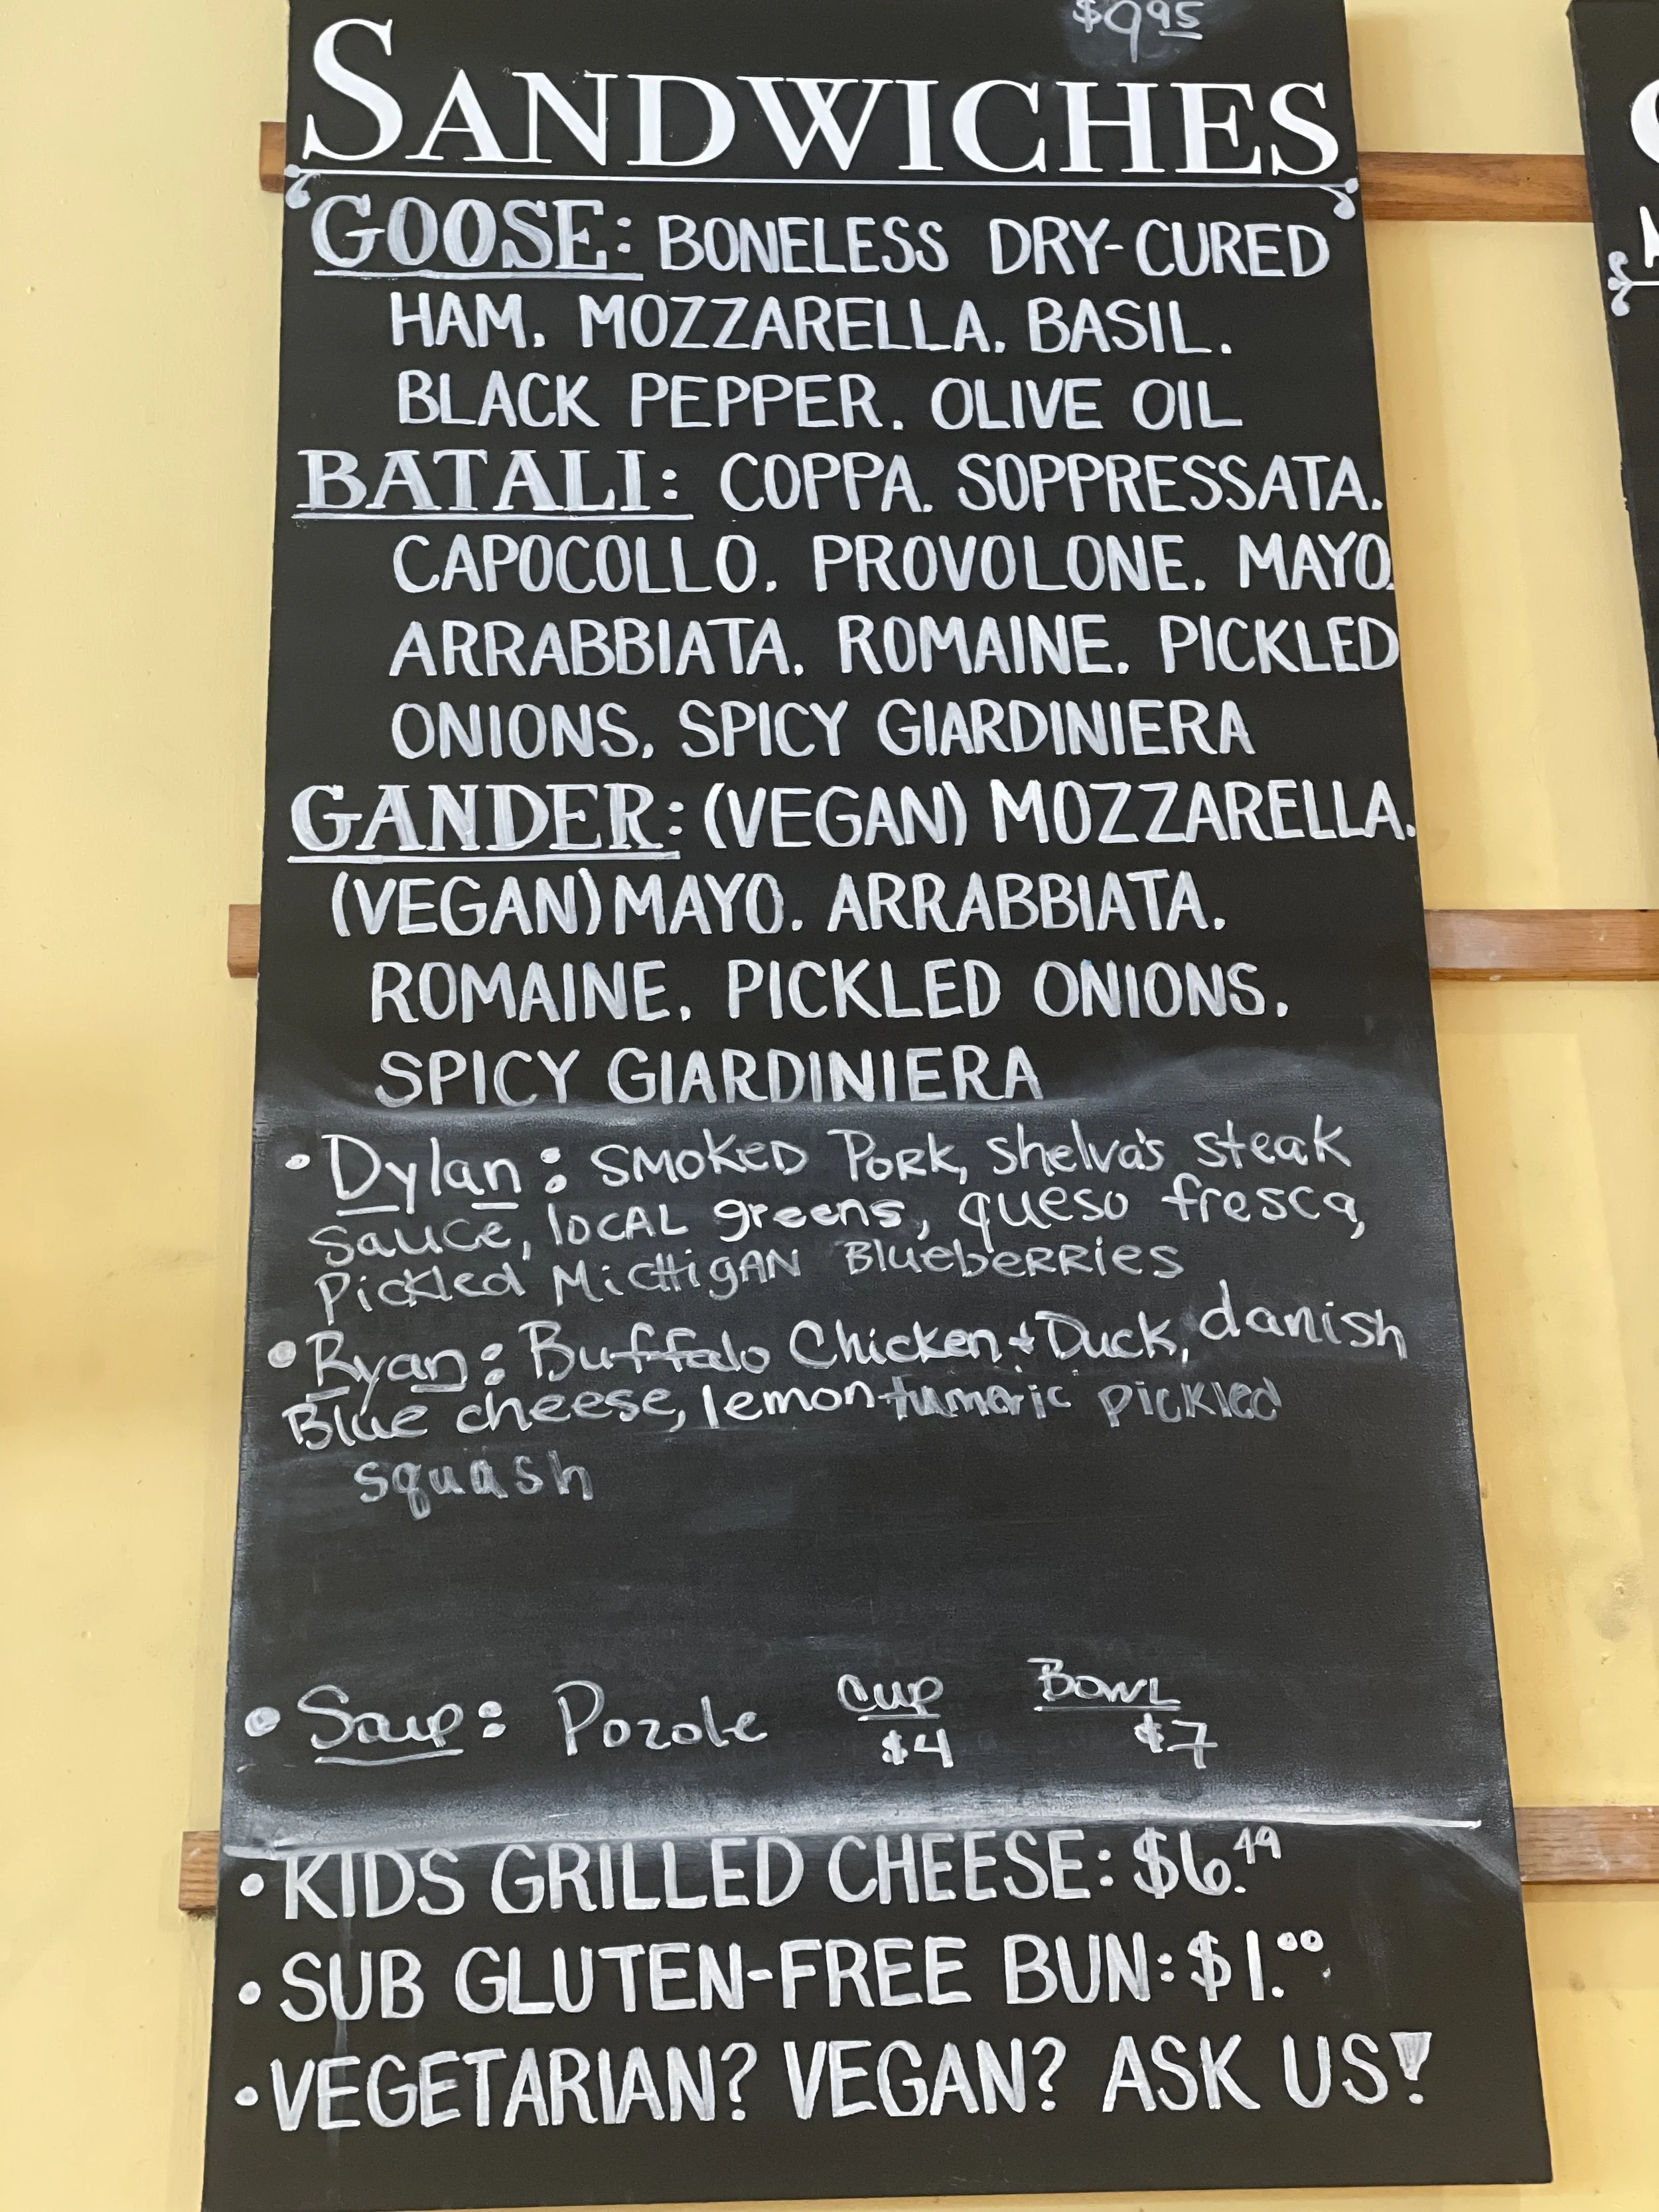 $9.95
SANDWICHES
GOOSE: BONELESS DRY-CURED
HAM, MOZZARELLA, BASIL,
BLACK PEPPER, OLIVE OIL
BATALI: COPPA, SOPPRESSATA,
CAPOCOLLO, PROVOLONE, MAYO,
ARRABBIATA, ROMAINE, PICKLED
ONIONS, SPICY GIARDINIERA
GANDER: (VEGAN) MOZZARELLA,
(VEGAN) MAYO, ARRABBIATA,
ROMAINE, PICKLED ONIONS,
SPICY GIARDINIERA
• Dylan: SMOKED PORK, Shelva's steak
sauce, loCAL greens, queso fresca,
Pickled MicHigAN BlueberRies
• Ryan: Buffalo Chicken + Duck, danish
Blue cheese, lemon tumeric pickled
squash
• Soup: Pozole Cup Bowl
$4 $7
• KIDS GRILLED CHEESE: $6.49
• SUB GLUTEN-FREE BUN: $1.00
• VEGETARIAN? VEGAN? ASK US!